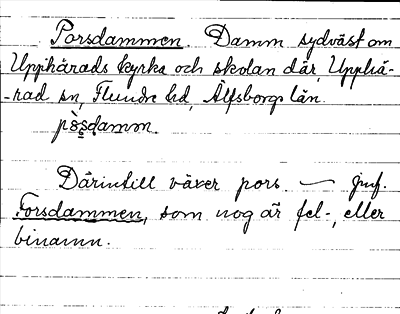 Porsdammen. Damm sydväst om
Upphärads kyrka och skolan där, Upphä-
-rad sn, Flundre hd, Älfsborgs län.
pòṣdamm.
Därintill växer pors. — Jmf.
Forsdammen, som nog är fel-, eller
binamn.